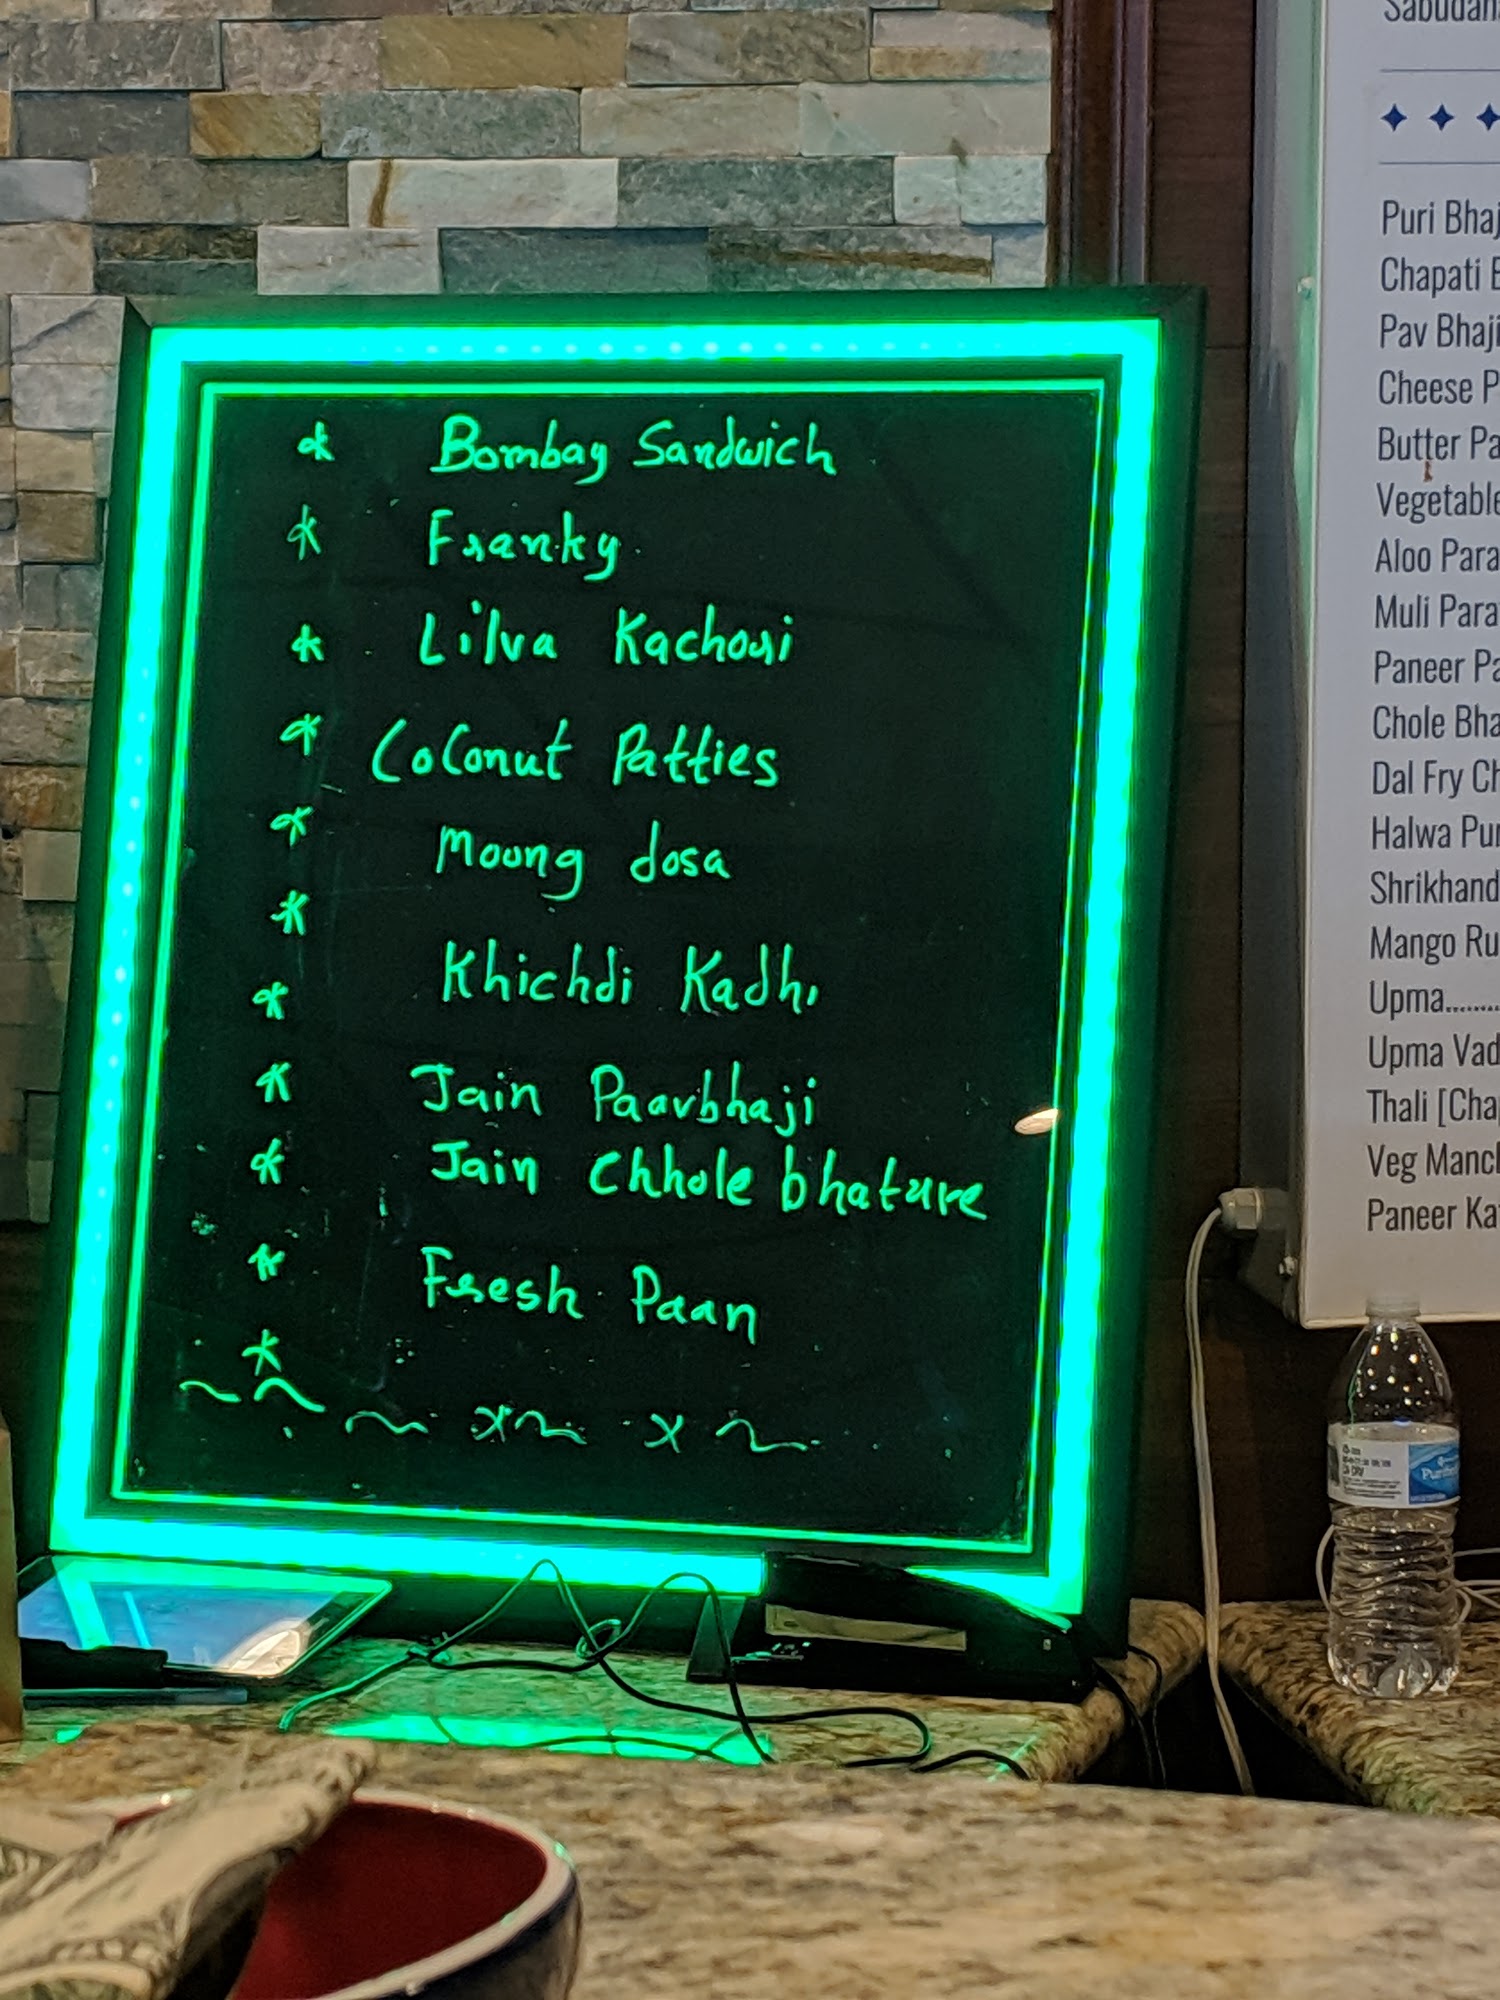 * Bombay Sandwich
* Franky.
* Lilva Kachori
* Coconut Patties
* Moong dosa
* Khichdi Kadhi
* Jain Paavbhaji
* Jain Chhole bhature
* Fresh Paan
*
*
Sabudan
Puri Bhaj
Chapati B
Pav Bhaji
Cheese P
Butter Pa
Vegetable
Aloo Para
Muli Para
Paneer Pa
Chole Bha
Dal Fry Ch
Halwa Pur
Shrikhand
Mango Ru
Upma........
Upma Vad
Thali [Chap
Veg Manch
Paneer Kat